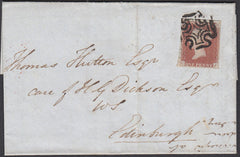 Thomas Hutton Esqr
care of H G Dickson Esqr
W.S.
Edinburgh